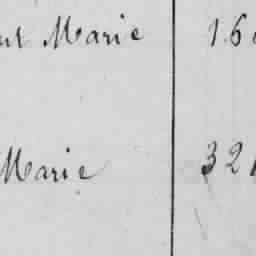 Marie 16
Marie 32